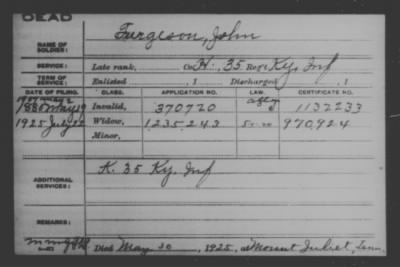 DEAD
NAME OF SOLDIER: Furgeson, John
SERVICE: Late rank, Co. H., 35 Reg't Ky. Inf
TERM OF SERVICE: Enlisted , 1 Discharged , 1
DATE OF FILING. CLASS. APPLICATION NO. LAW. CERTIFICATE NO.
1880 May Invalid, 370720 1132233
1925 July Widow, 1235243 970924
Minor,
ADDITIONAL SERVICES: K. 35 Ky. Inf
REMARKS:
Died May 30, 1925, at Mount Juliet, Tenn.